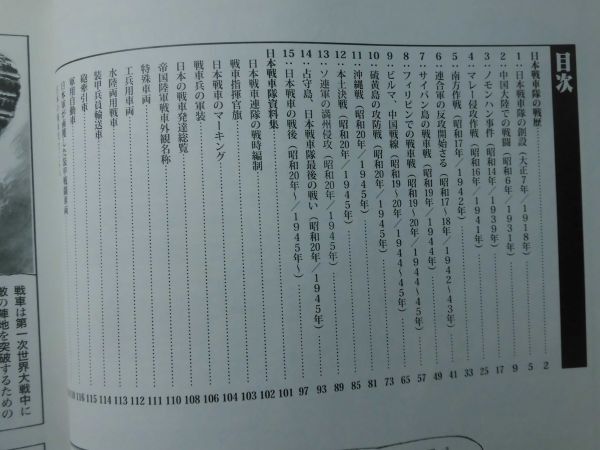 目次
日本戦車隊の戦歴 2
1：日本戦車隊の創設（大正7年／1918年） 5
2：中国大陸での戦闘（昭和6年／1931年） 9
3：ノモンハン事件（昭和14年／1939年） 17
4：マレー侵攻作戦（昭和16年／1941年） 25
5：南方作戦（昭和17年／1942年） 33
6：連合軍の反攻開始さる（昭和17～18年／1942～43年） 41
7：サイパン島の戦車戦（昭和19年／1944年） 49
8：フィリピンでの戦車戦（昭和19～20年／1944～45年） 57
9：ビルマ、中国戦線（昭和19～20年／1944～45年） 65
10：硫黄島の攻防戦（昭和20年／1945年） 73
11：沖縄戦（昭和20年／1945年） 81
12：本土決戦（昭和20年／1945年） 85
13：ソ連軍の満州侵攻（昭和20年／1945年） 89
14：占守島、日本戦車隊最後の戦い（昭和20年／1945年） 93
15：日本戦車の戦後（昭和20年～／1945年～） 97
日本戦車隊資料集 101
日本戦車連隊の戦時編制 102
戦車指揮官旗 103
日本戦車のマーキング 104
戦車兵の軍装 106
日本の戦車発達総覧 108
帝国陸軍戦車外観名称 110
特殊車両 111
工兵用車両 112
水陸両用戦車 113
装甲兵員輸送車 114
砲牽引車 115
軍用自動車 116
日本軍が鹵獲した装甲戦闘車両
戦車は第一次世界大戦中に
敵の陣地を突破するための